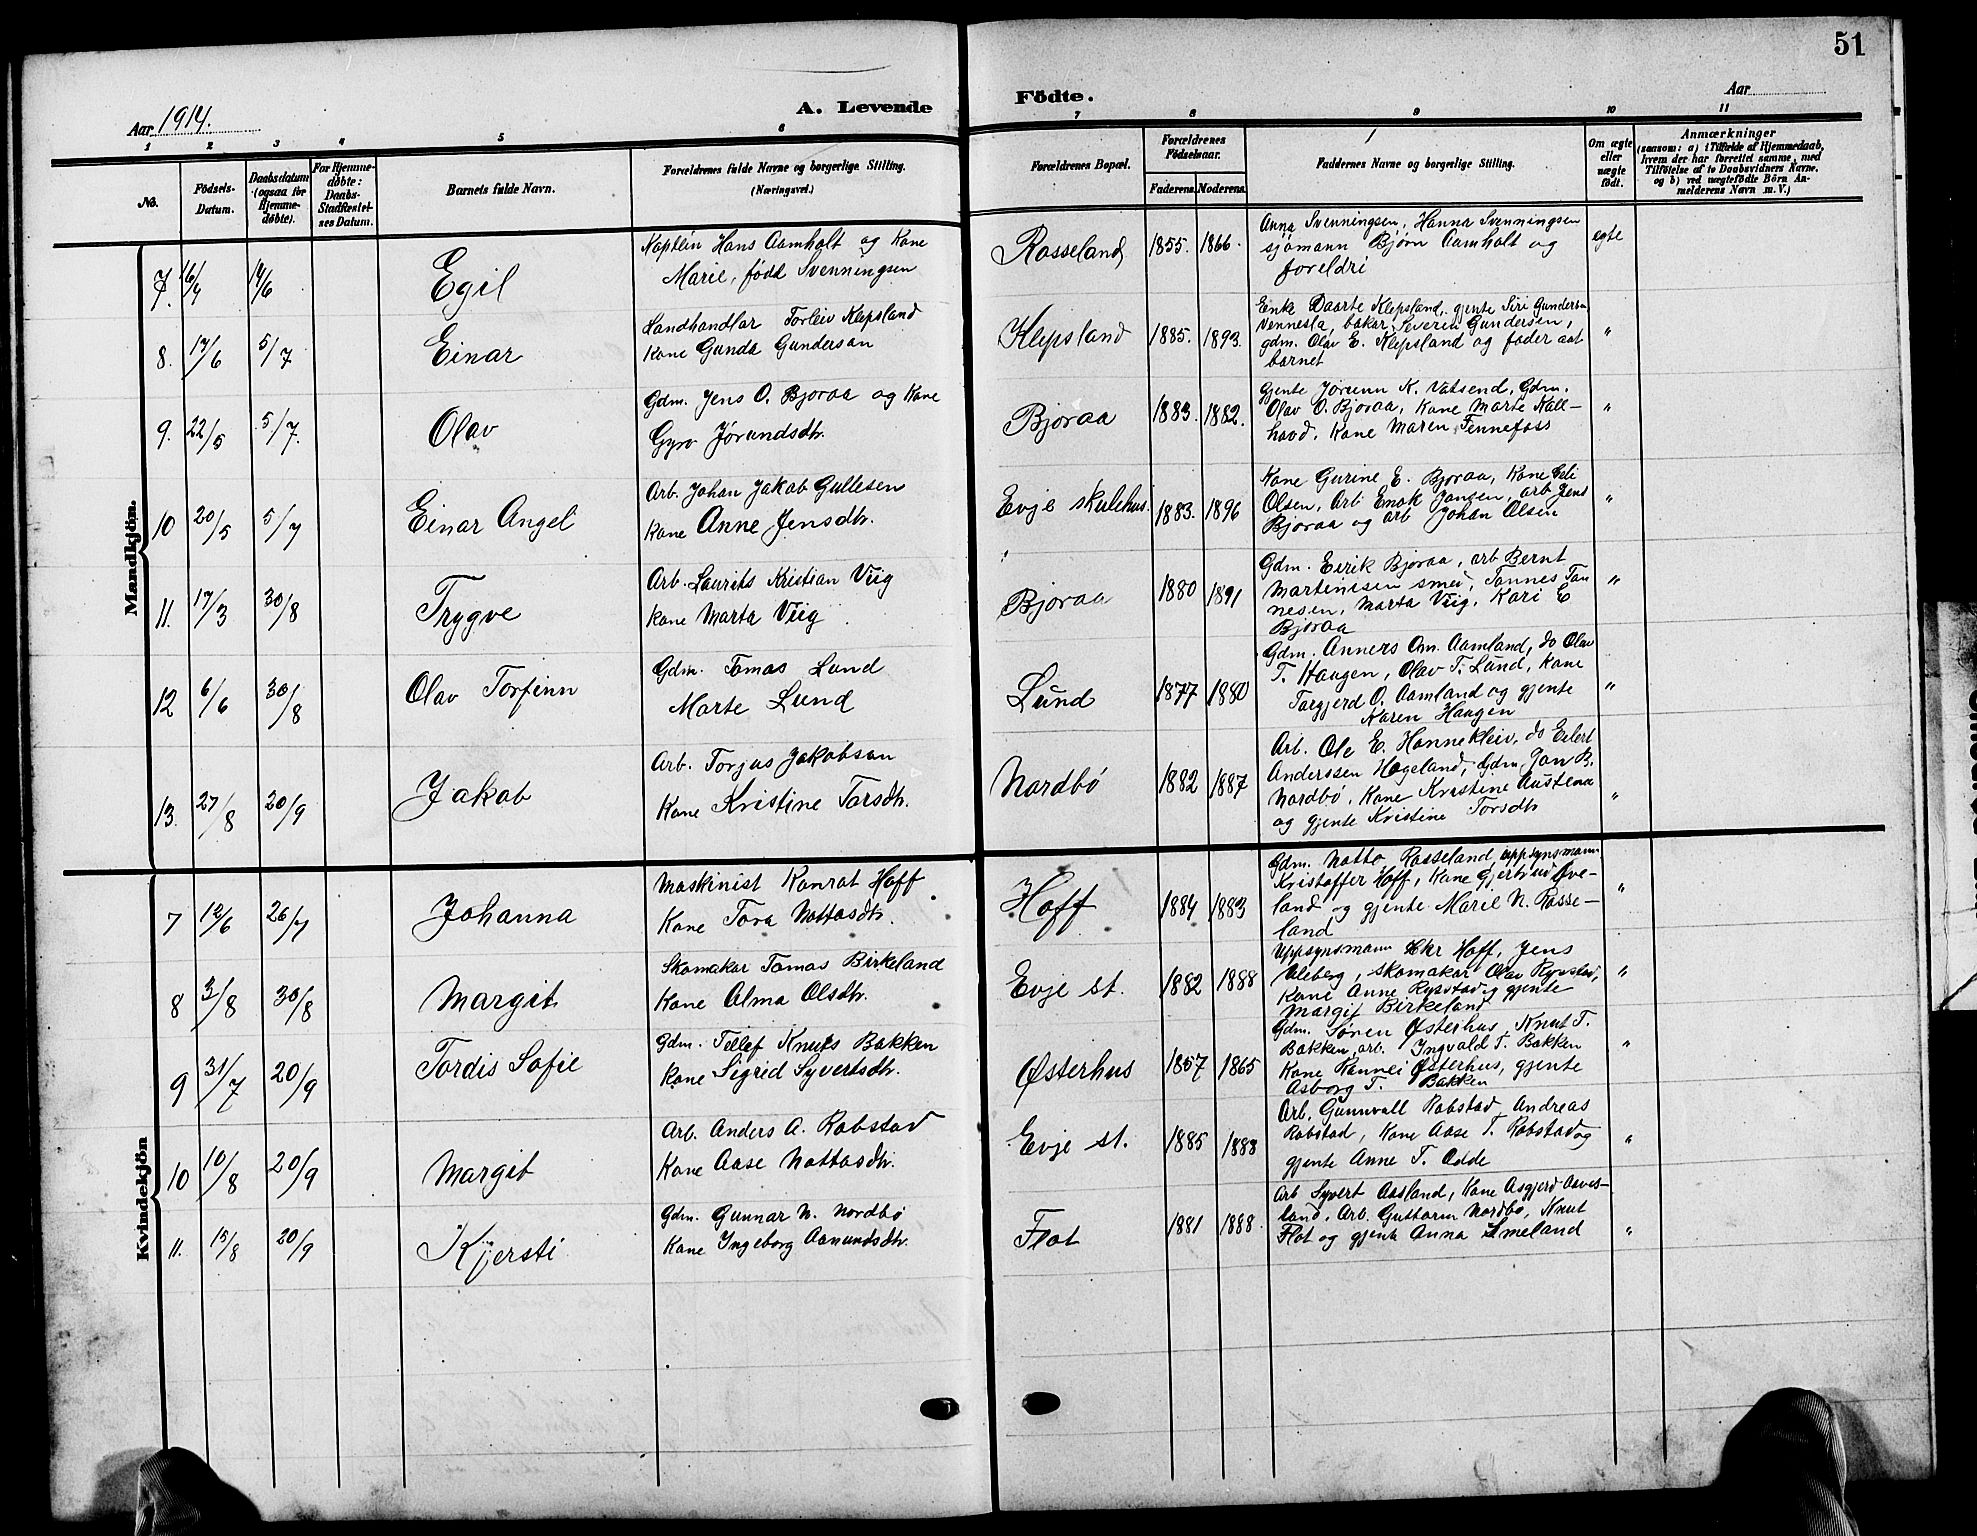 51
Aar 1914.
A. Levende
Födte.
Aar
1 2 3 4 5 6 7 8 9 10 11
No.
Födsels-Datum.
Daabsdatum (ogsaa for Hjemme-døbte).
For Hjemme-døbte: Daabs-Stadfæstel-ses Datum.
Barnets fulde Navn.
Forældrenes fulde Navne og borgerlige Stilling. (Næringsvei.)
Forældrenes Bopæl.
Forældrenes Födselsaar.
Faderens. Moderens.
Faddernes Navne og borgerlige Stilling.
Om ægte eller uægte födt.
Anmærkninger
(saasom: a) i Tilfælde af Hjemmedaab,
hvem der har forrettet samme, med
Tilføielse af to Daabsvidners Navne.
og b) ved uægtefødte Börn An-
melderens Navn m. V.)
Mandkjön.
7. 14/6 Egil
Kaptein Hans Aamholt og Kone
Marie, född Svenningsen
Rosseland 1855. 1866.
Anna Svenningsen, Hanna Svenningsen
sjömann Bjørn Aamholt og
foreldri
egte
8. 17/6 5/7 Einar
Landhandlar Torleiv Klepsland
Kone Gunda Gundersen
Klepsland 1885. 1893.
Enke Daarte Klepsland, gjente Siri Gundersen
Vennesla, bakar Severin Gundersen,
gdm. Olav E. Klepsland og fader aat
barnet
"
9. 22/5 5/7. Olav
Gdm. Jens O. Bjoraa og Kone
Gyro Jørundsdtr.
Bjoraa 1883. 1882.
Gjente Jorunn K. Vatsend, Gdm.
Olav O. Bjoraa, Kone Marte Kall-
havd, Kone Maren Fennefoss
"
10 20/5 5/7 Einar Angel
Arb. Johan Jakob Gullesen
Kone Anne Jensdtr.
Evje skulehus. 1883. 1896
Kone Gurine E. Bjoraa, Kone
Olsen, Arb. Enok Jansen, arb Jens
Bjoraa og arb Johan Olsen
"
11. 17/3 30/8 Trygve
Arb. Laurits Kristian Viig
Kone Marta Viig
Bjoraa 1880 1891
Gdm. Eirik Bjoraa, arb Bernt
Martinissen smed, Tannes Tan
nesen, Marta Viig, Kari E
Bjoraa
"
12 6/6 30/8 Olav Torfinn
Gdm. Tomas Lund
Marte Lund
Lund 1877 1880
Gdm. Anners Om. Aamland, do Olav
T. Haugen, Olav T. Lund, Kone
Torgjerd O. Aamland og gjente
Karen Haugen
"
13. 27/8 20/9 Jakob
Arb. Torjus Jakobsen
Kone Kristine Torsdtr.
Nordbö 1882 1887
Arb. Ole E. Honnekleiv, do Eilert
Anderssen Hogeland, Gdm. Jon B.
Nordbö, Kone Kristine Austena
og gjente Kristine Torsdtr
"
Kvindekjön
7 12/6 26/7 Johanna
Maskinist Konrat Hoff
Kone Tora Nottosdtr.
Hoff 1884 1883
Gdm. Notto Rosseland, uppsynsmann
Kristoffer Hoff, Kone Gjertrud Ive-
land og gjente Marie N. Rosse-
land
"
8 3/8 30/8 Margit
Skomakar Tomas Birkeland
Kone Alma Olsdtr.
Evje st. 1882 1888
Uppsynsmann Hoff, Jens
Uleberg, skomakar Olav Rysstad,
Kone Anne Rysstad og gjente
Margit Birkeland
"
9 31/7 20/9 Tordis Sofie
Gdm. Tellef Knuts Bakken
Kone Sigrid Syvertsdtr.
Østerhus 1857 1865
Gdm. Søren Østerhus, Knut T.
Bakken, arb. Ingvald T. Bakken
Kone Rannei Østerhus, gjente
Asborg T. Bakken
"
10 10/8 20/9 Margit
Arb. Anders A. Robstad
Kone Aase Nottosdtr.
Evje st. 1885 1888
Arb. Gunnvall Robstad, Andreas
Robstad, Kone Aase T. Robstad og
gjente Anne T. Odde
"
11. 15/8 20/9 Kjersti
Gdm. Gunnar N. Nordbö
Kone Ingeborg Aanundsdtr.
Flot 1881 1888.
Arb Syvert Aasland, Kone Asgjerd Aaves-
land, Arb. Guttorm Nordbø, Knut
Flot og gjente Anna Smeland
"